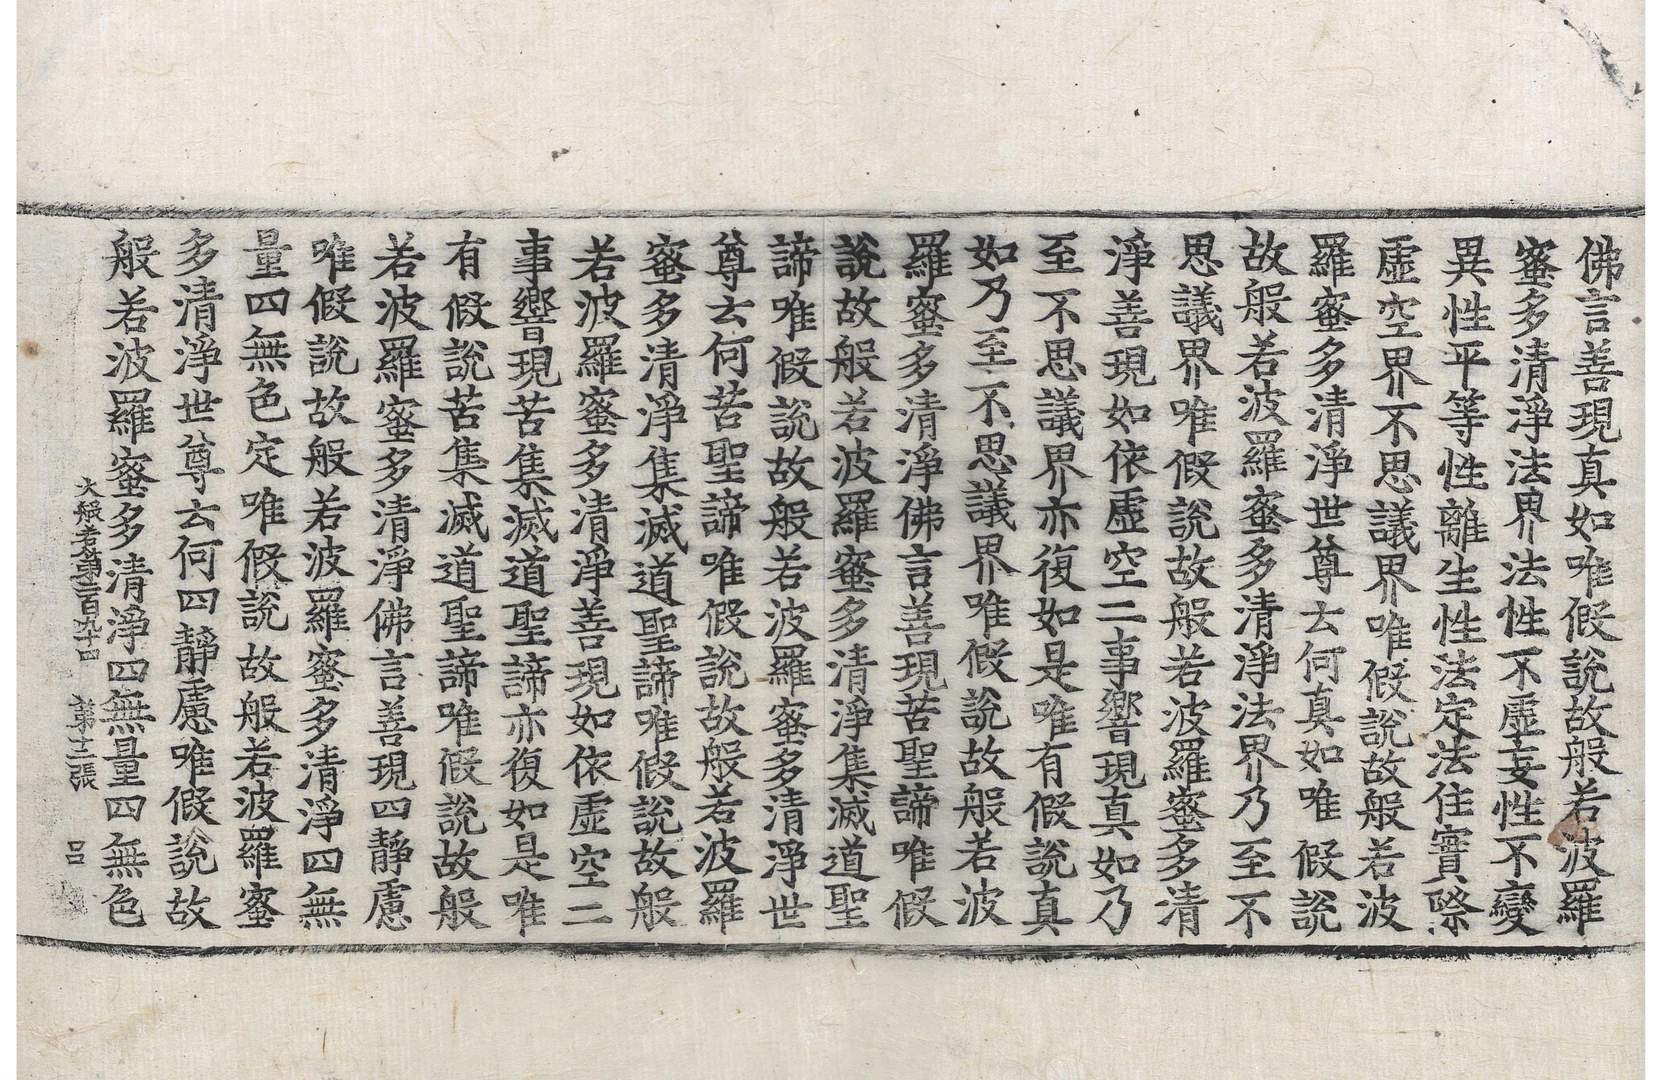 佛言善現真如唯假說故般若波羅
蜜多清淨法界法性不虛妄性不變
異性平等性離生性法定法住實際
虛空界不思議界唯假說故般若波
羅蜜多清淨世尊云何真如唯假說
故般若波羅蜜多清淨法界乃至不
思議界唯假說故般若波羅蜜多清
淨善現如依虛空二事響現真如乃
至不思議界亦復如是唯有假說真
如乃至不思議界唯假說故般若波
羅蜜多清淨佛言善現苦聖諦唯假
說故般若波羅蜜多清淨集滅道聖
諦唯假說故般若波羅蜜多清淨世
尊云何苦聖諦唯假說故般若波羅
蜜多清淨集滅道聖諦唯假說故般
若波羅蜜多清淨善現如依虛空二
事響現苦集滅道聖諦亦復如是唯
有假說苦集滅道聖諦唯假說故般
若波羅蜜多清淨佛言善現四靜慮
唯假說故般若波羅蜜多清淨四無
量四無色定唯假說故般若波羅蜜
多清淨世尊云何四靜慮唯假說故
般若波羅蜜多清淨四無量四無色
大般若第二百九十四 第十三張 呂